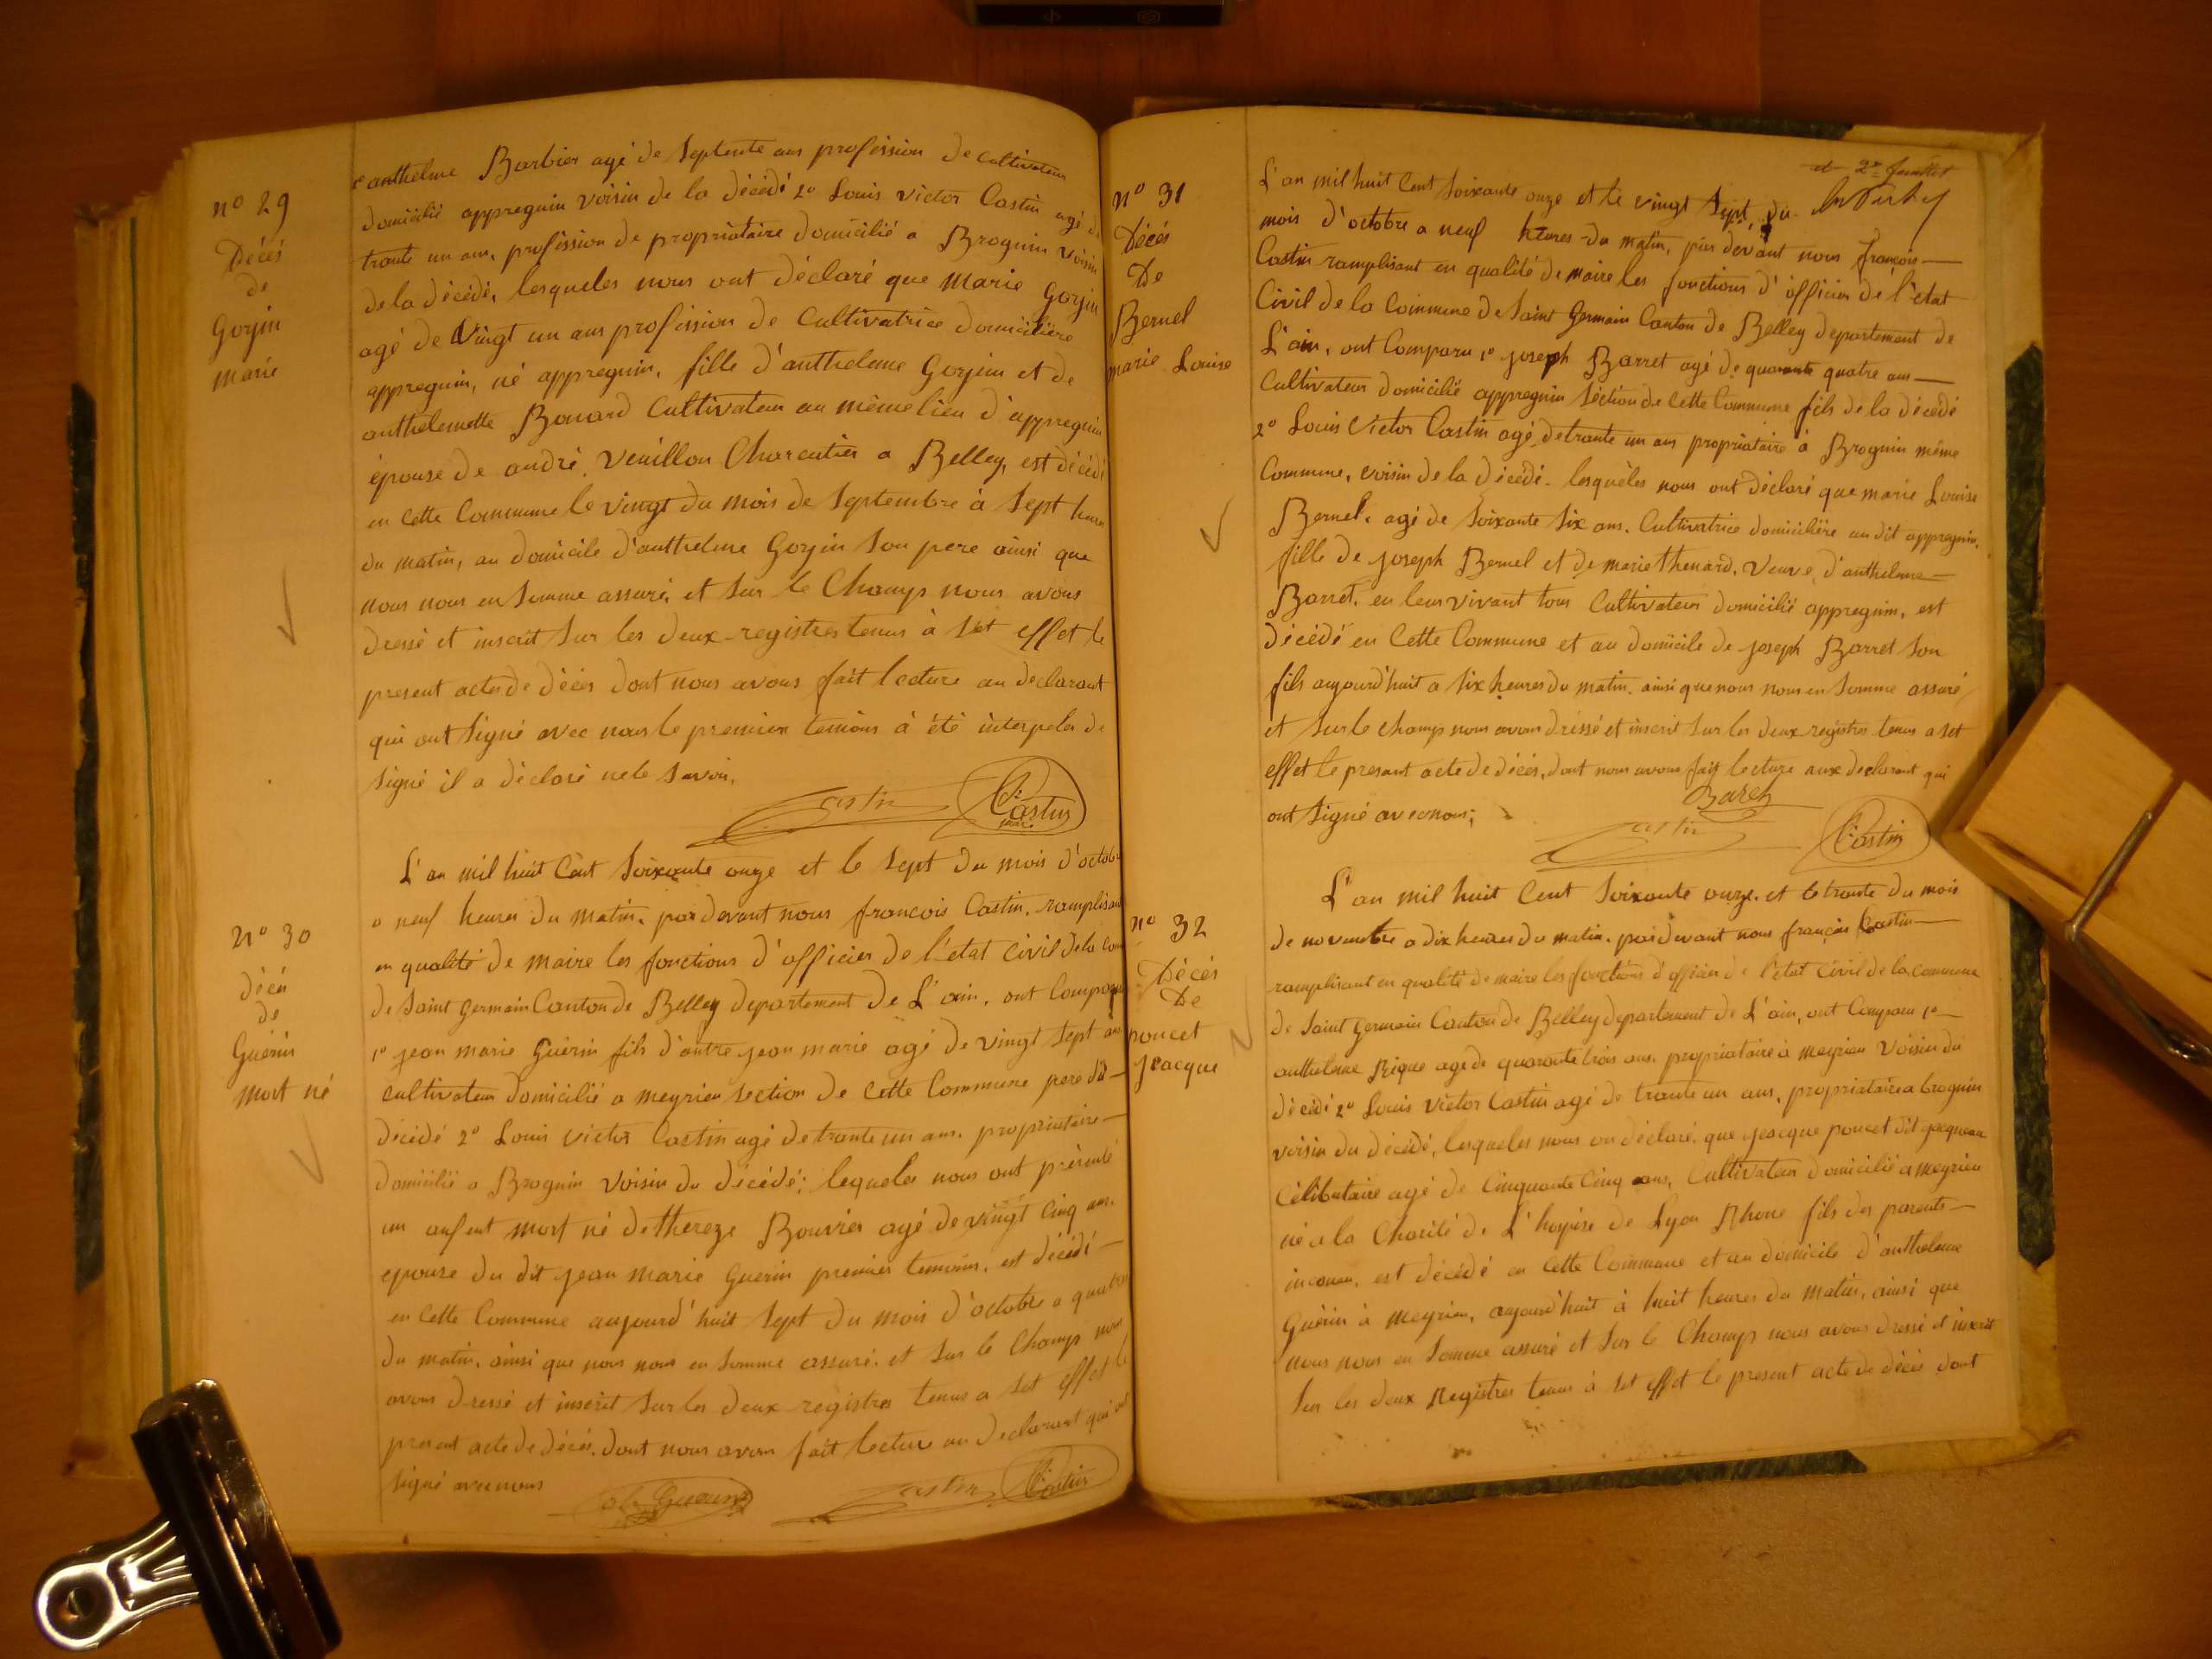 nº 29
Décés
de
Goyin
marie
1º anthelme Barbier agé de Septente ans profession de cultivateur
domicilié appregnin voisin de la décédé 2º Louis victor Castin agé de
trante un ans, profession de propriataire domicilié a Brognin voisin
de la décédé, lesqueles nous ont déclaré que marie Goyin
agé de Vingt un ans profession de Cultivatrice domicilière
appregnin, né appregnin, fille d'anthelme Goyin et de
anthelmette Bonard Cultivateur au même lieu d'appregnin
épouse de andré Veuillon Charcutier a Belley, est décédé
en cette Commune le vingt du mois de Septembre à Sept heures
du matin, au domicile d'anthelme Goyin Son pere ainsi que
nous nous en Somme assuré, et Sur le Champ nous avons
dressé et inscrit Sur les deux registres tenus à Set effet le
present actes de décés dont nous avons fait lecture au declarant
qui ont Signé avec nous le premier temoins à été interpeler de
Signé il a déclaré ne le Savoir.
Castin F: Castin
maire
nº 30
décé
de
Guérin
mort né
L'an mil huit Cent Soixante onze et le Sept du mois d'octobre
a neuf heures du matin, par devant nous francois Castin, ramplisant
en qualité de maire les fonctions d'officier de l'etat Civil de la com
de Saint germain Canton de Belley departement de L'ain, ont Comparu
1º jean marie Guérin fils d'autre jean marie agé de vingt Sept ans
cultivateur domicilié a meyrieu section de cette Commune pere du
décédé 2º Louis victor Castin agé de trante un ans, propriataire
domicilié a Brognin voisin du décédé; lequeles nous ont présenté
un anfent mort né de thereze Bouvier agé de vingt Cinq ans.
epouse du dit jean marie Guerin premier temoins, est décédé
en Cette Commune aujourd'huit Sept du mois d'octobre a quatre
du matin, ainsi que nous nous en Somme assuré, et Sur le Champ nous
avons dressé et inscrit Sur les deux registres tenus a Set effet le
present acte de décés, dont nous avons fait lecture au declarant qui ont
Signé avec nous
Guerin Castin F: Castin
et 2e feuillet
nº 31
Décés
De
Bernel
marie Louise
L'an mil huit Cent Soixante onze et le vingt Sept, du
mois d'octobre a neuf heures du matin, par devant nous françois
Castin ramplisant en qualité de maire les fonctions d'officier de l'etat
Civil de la Commune de Saint Germain Canton de Belley departement de
L'ain, ont Comparu 1º joseph Barret agé de quarante quatre ans
Cultivateur domicilié appregnin Séction de Cette Commune fils de la décédé
2º Louis Victor Castin agé de trante un ans propriataire à Brognin même
Commune, voisin de la décédé. lesquèles nous ont déclaré que marie Louise
Bernel, agé de Soixante Six ans. Cultivatrice domicilière au dit appregnin,
fille de joseph Bernel et de marie thenard, Veuve d'anthelme
Barret, en leur vivant tous Cultivateur domicilié appregnin, est
décédé en Cette Commune et au domicile de joseph Barret Son
fils aujourd'huit a Six heures du matin, ainsi que nous nous en Somme assuré
et Sur le champ nous avons dréssé et inscrit Sur les deux registres tenus a Set
effet le present acte de décés, dont nous avons fait lecture aux declarant qui
ont Signé avec nous;
Castin F: Castin
nº 32
Décés
De
poncet
jeacque
L'an mil huit Cent Soixante onze, et le trante du mois
de novembre a dix heures du matin, par devant nous françois Castin
ramplisant en qualité de maire les fonctions d'officier de l'etat Civil de la Commune
de Saint germain Canton de Belley departement de L'ain, ont Comparu 1º
anthelme Rique agé de quarante trois ans, propriataire à meyrieu Voisin du
décédé 2º Louis victor Castin agé de trante un ans, propriataire a brognin
voisin du décédé, lesqueles nous on déclaré, que jeacque poncet dit jacquenau
Célibataire agé de Cinquante Cinq ans, Cultivateur domicilié a meyrieu
né a la Charité de L'hopise de Lyon Rhone fils des parents
inconnu, est décédé en Cette Commune et au domicile d'anthelme
Guérin à meyrieu, aujourd'huit à huit heures du matin, ainsi que
nous nous en Somme assuré et Sur le Champ nous avons dressé et inscrit
Sur les deux Registres tenus à Set effet le present acte de décés dont